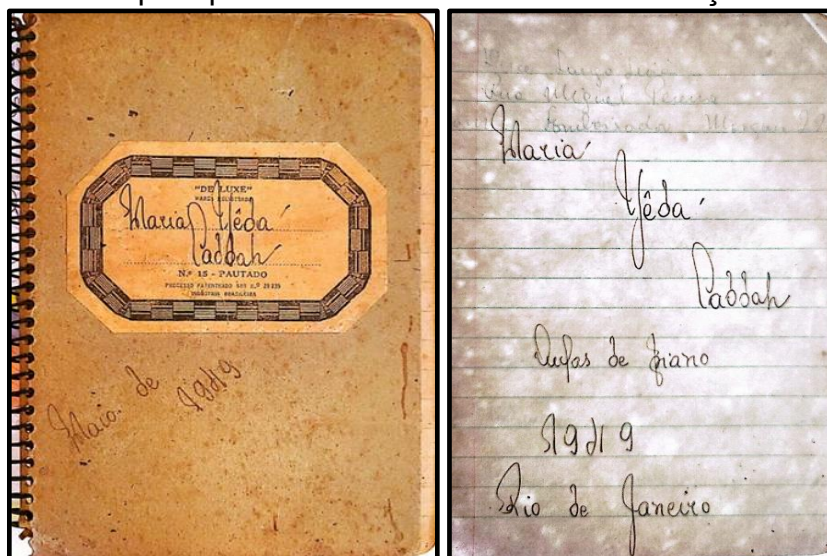 "DE LUXE"
MARCA REGISTRADA
Maria Yêda
Caddah
N.º 15 - PAUTADO
PROCESSO PATENTEADO SOB N.º
INDÚSTRIA BRASILEIRA
Maio de 1949
Rua Miguel Pereira
Maria
Yêda
Caddah
Aulas de Piano
1949
Rio de Janeiro